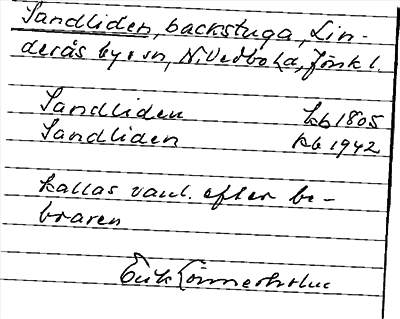 Sandliden, backstuga, Lin-
derås by o sn, N. Vedbo hd, Jönk l.
Sandliden kb 1805
Sandliden kb 1942
kallas vanl. efter be-
boaren
Erik